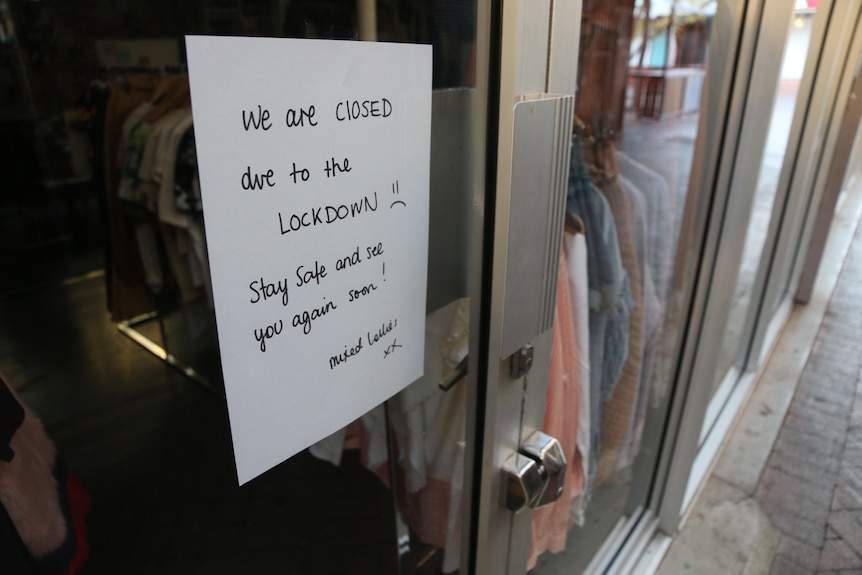 We are CLOSED
due to the
LOCKDOWN
Stay Safe and see
you again soon!
mixed Lollies
xx